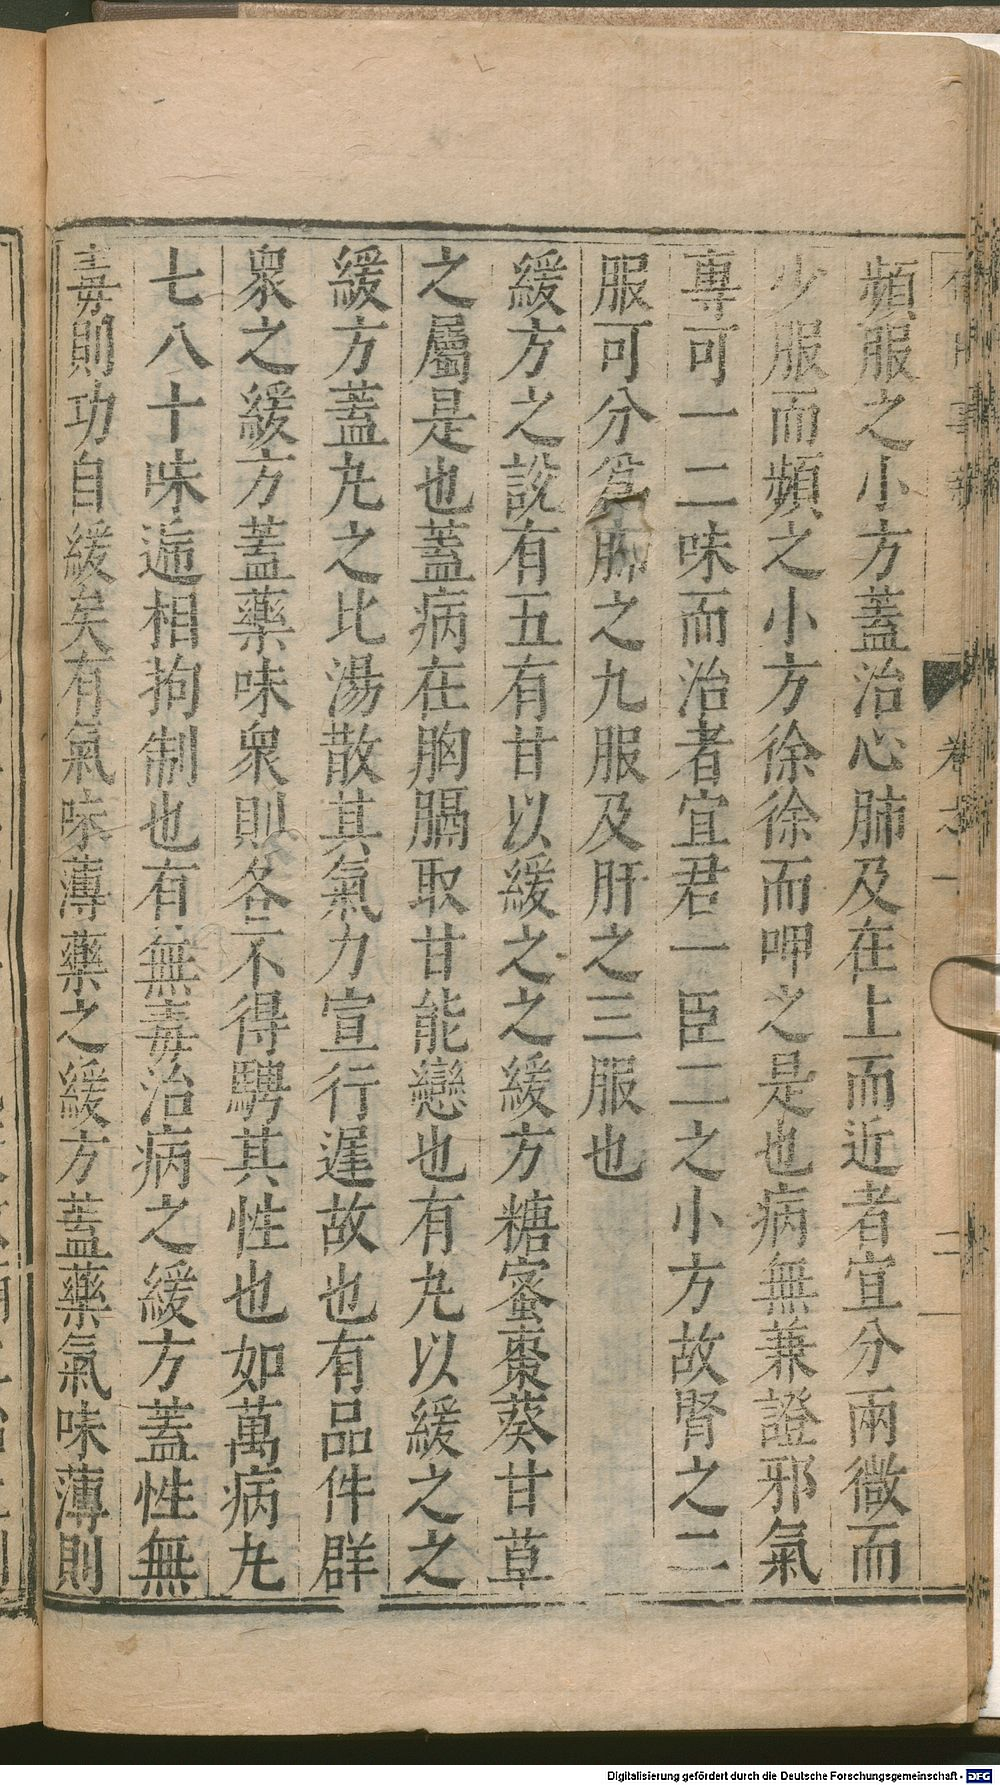 頻服之小方蓋治心肺及在上而近者宜分兩微而
少服而頻之小方徐徐而呷之是也病無兼證邪氣
專可一二味而治者宜君一臣二之小方故腎之二
服可分爲肺之九服及肝之三服也
緩方之說有五有甘以緩之之緩方糖蜜棗葵甘草
之屬是也蓋病在胸膈取甘能戀也有丸以緩之之
緩方蓋丸之比湯散其氣力宣行遲故也有品件群
衆之緩方蓋藥味衆則各不得騁其性也如萬病丸
七八十味遞相拘制也有無毒治病之緩方蓋性無
毒則功自緩矣有氣味薄藥之緩方蓋藥氣味薄則
Digitalisierung gefördert durch die Deutsche Forschungsgemeinschaft - DFG